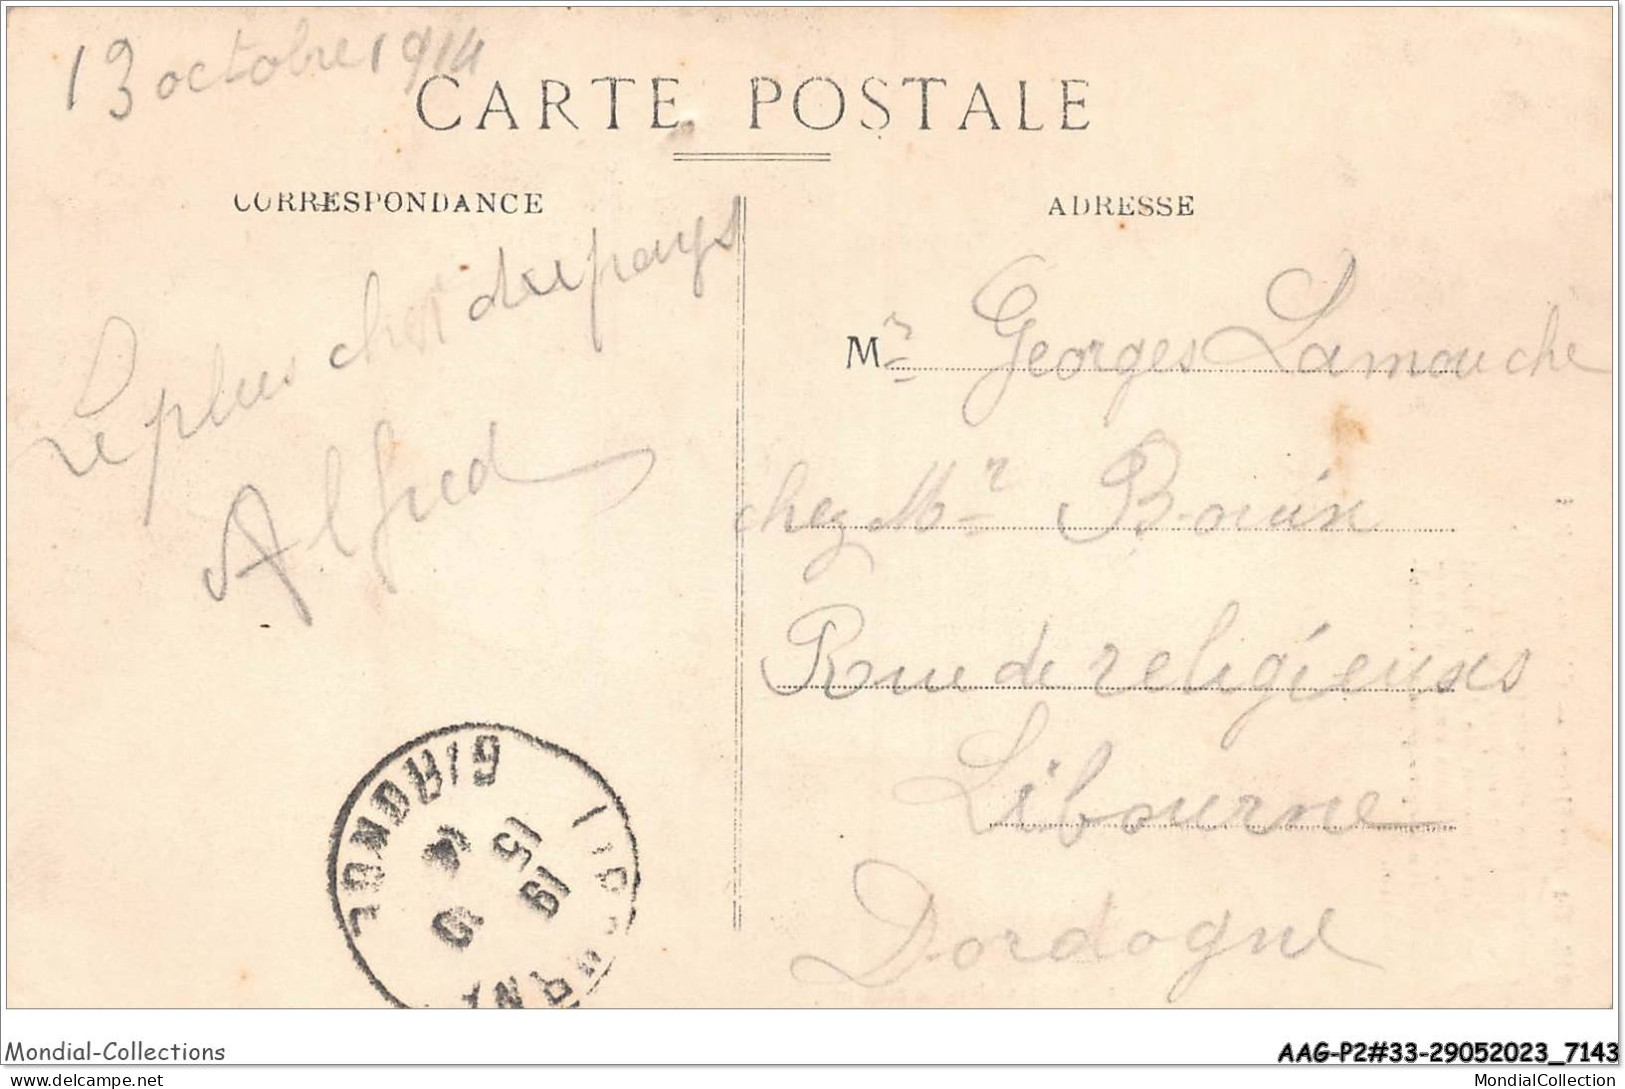 13 octobre 1914
CARTE POSTALE
CORRESPONDANCE
ADRESSE
Le plus chot du pays
Alfred
Mr Georges Lamouche
chez Mr Bouix
Rue de religieuses
Libourne
Dordogne
GIRONDE
15
19
14
10
Mondial-Collections
AAG-P2#33-29052023_7143
delcampe.net
MondialCollection